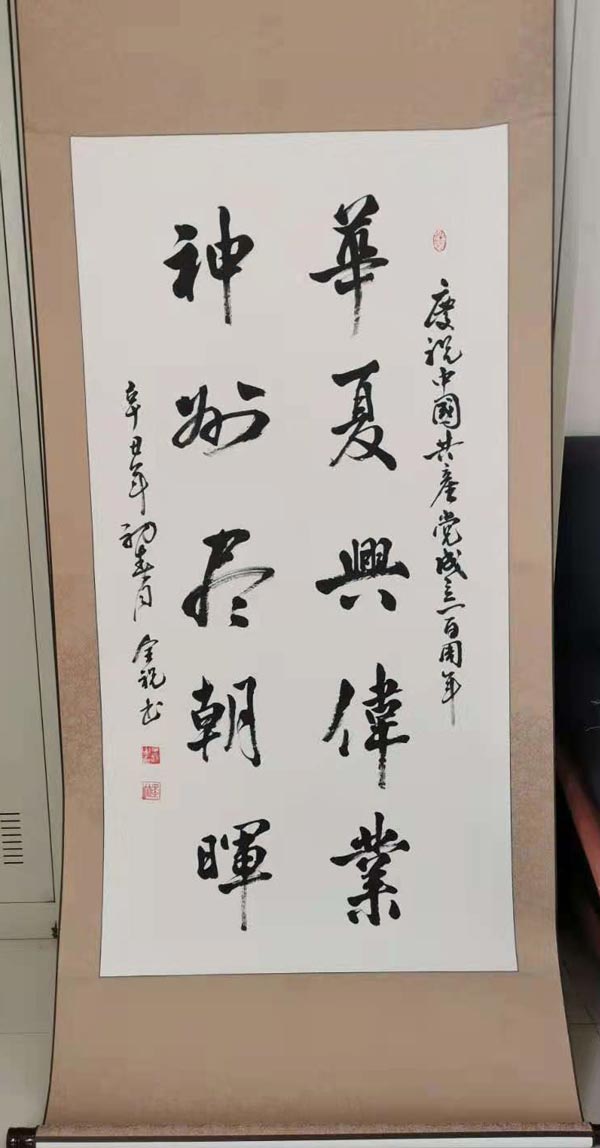 慶祝中國共產党成立一百周年
華夏興偉業
神州尽朝暉
辛丑年初春月全祝书